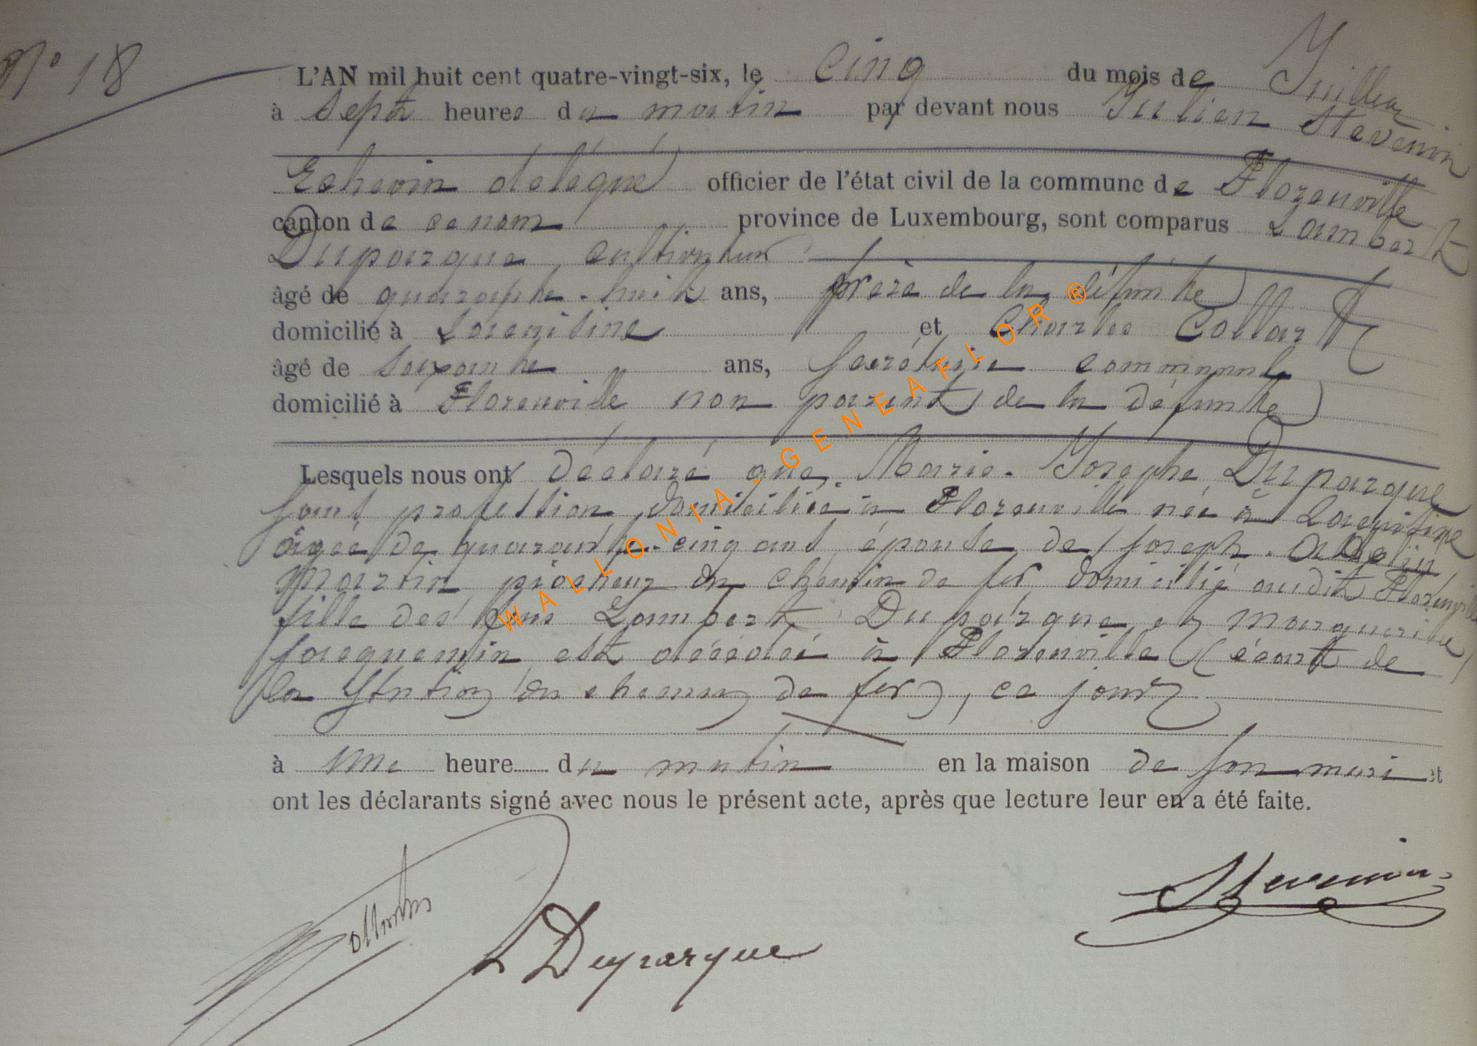 N° 18
L'AN mil huit cent quatre-vingt-six, le cinq du mois de Juillet
à sept heures du matin par devant nous Julien Stevenin
Echevin délégué officier de l'état civil de la commune de Florenville
canton de ce nom province de Luxembourg, sont comparus Lambert
Duparque, cultivateur
âgé de quarante-huit ans, frère de la défunte
domicilié à et Charles Collart
âgé de soixante ans, secrétaire communal
domicilié à Florenville non parent de la défunte
Lesquels nous ont déclaré que Marie-Josephe Duparque
sans profession, domiciliée à Florenville née à
âgée de quarante-cinq ans, épouse de Joseph
Martin piocheur au chemin de fer domicilié audit Florenville
fille des feus Lambert Duparque et Marguerite
est décédée à Florenville (écart de
la Station du chemin de fer), ce jour
à une heure du matin en la maison de son mari et
ont les déclarants signé avec nous le présent acte, après que lecture leur en a été faite.
Stevenin
L Duparque
WALLONIA-GENEAFLOR ©